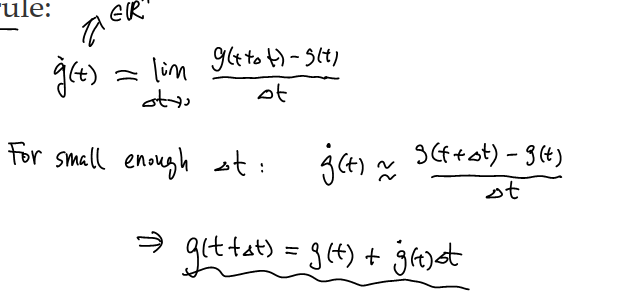 rule:
∈ℝ
ġ(t) = lim Δt→0 (g(t+Δt) - g(t)) / Δt
For small enough Δt : ġ(t) ≈ (g(t+Δt) - g(t)) / Δt
⇒ g(t+Δt) = g(t) + ġ(t)Δt